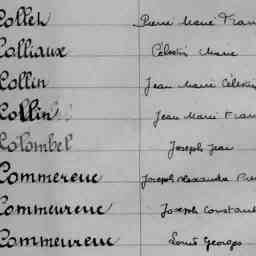 Collet Pierre Marie Fran
Colliaux Célestin Marie
Collin Jean Marie Célestin
Collin Jean Marie Fran
Colombel Joseph Jean
Commereuc Joseph Alexandre
Commeureuc Joseph Constant
Commeureuc Louis Georges